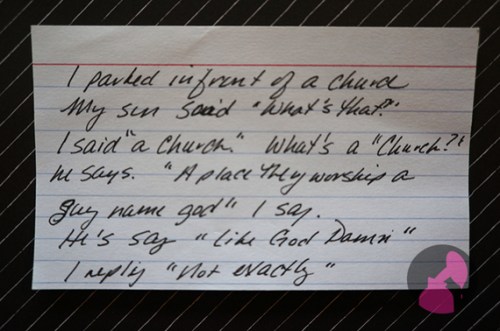 I parked in front of a church
My son said "What's that?"
I said "a Church." What's a "Church?"
he says. "A place they worship a
guy name god" I say.
He's say "Like God Damn"
I reply "Not exactly"